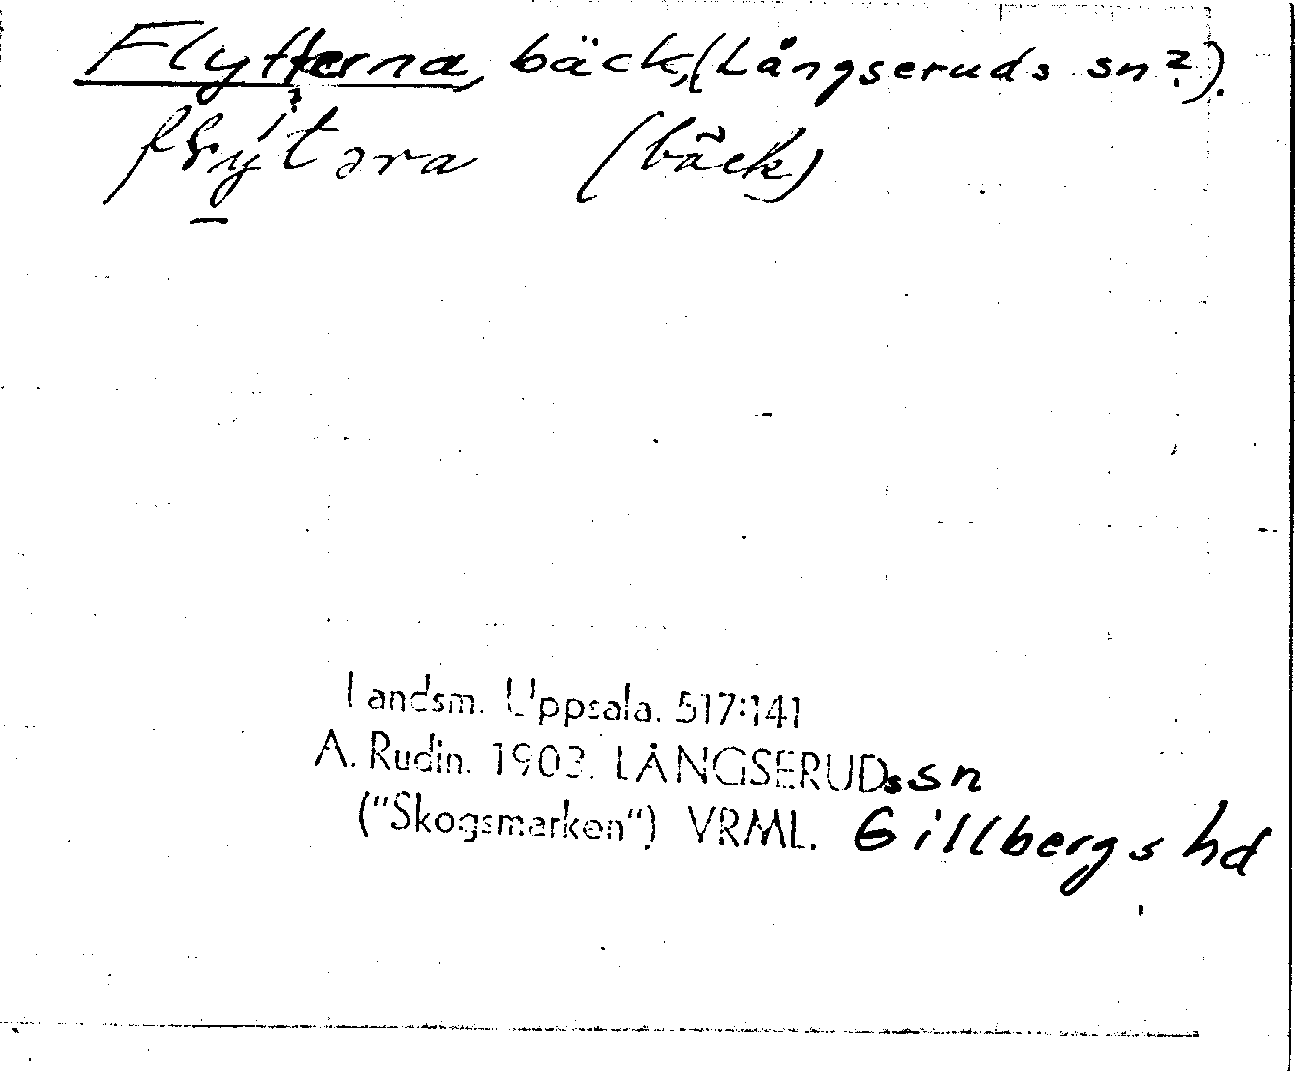 Flytterna, bäck, (Långseruds sn?).
flýtəra (bäck)
Landsm. Uppsala. 517:141
A. Rudin. 1903. LÅNGSERUDs sn
("Skogsmarken") VRML. Gillbergs hd